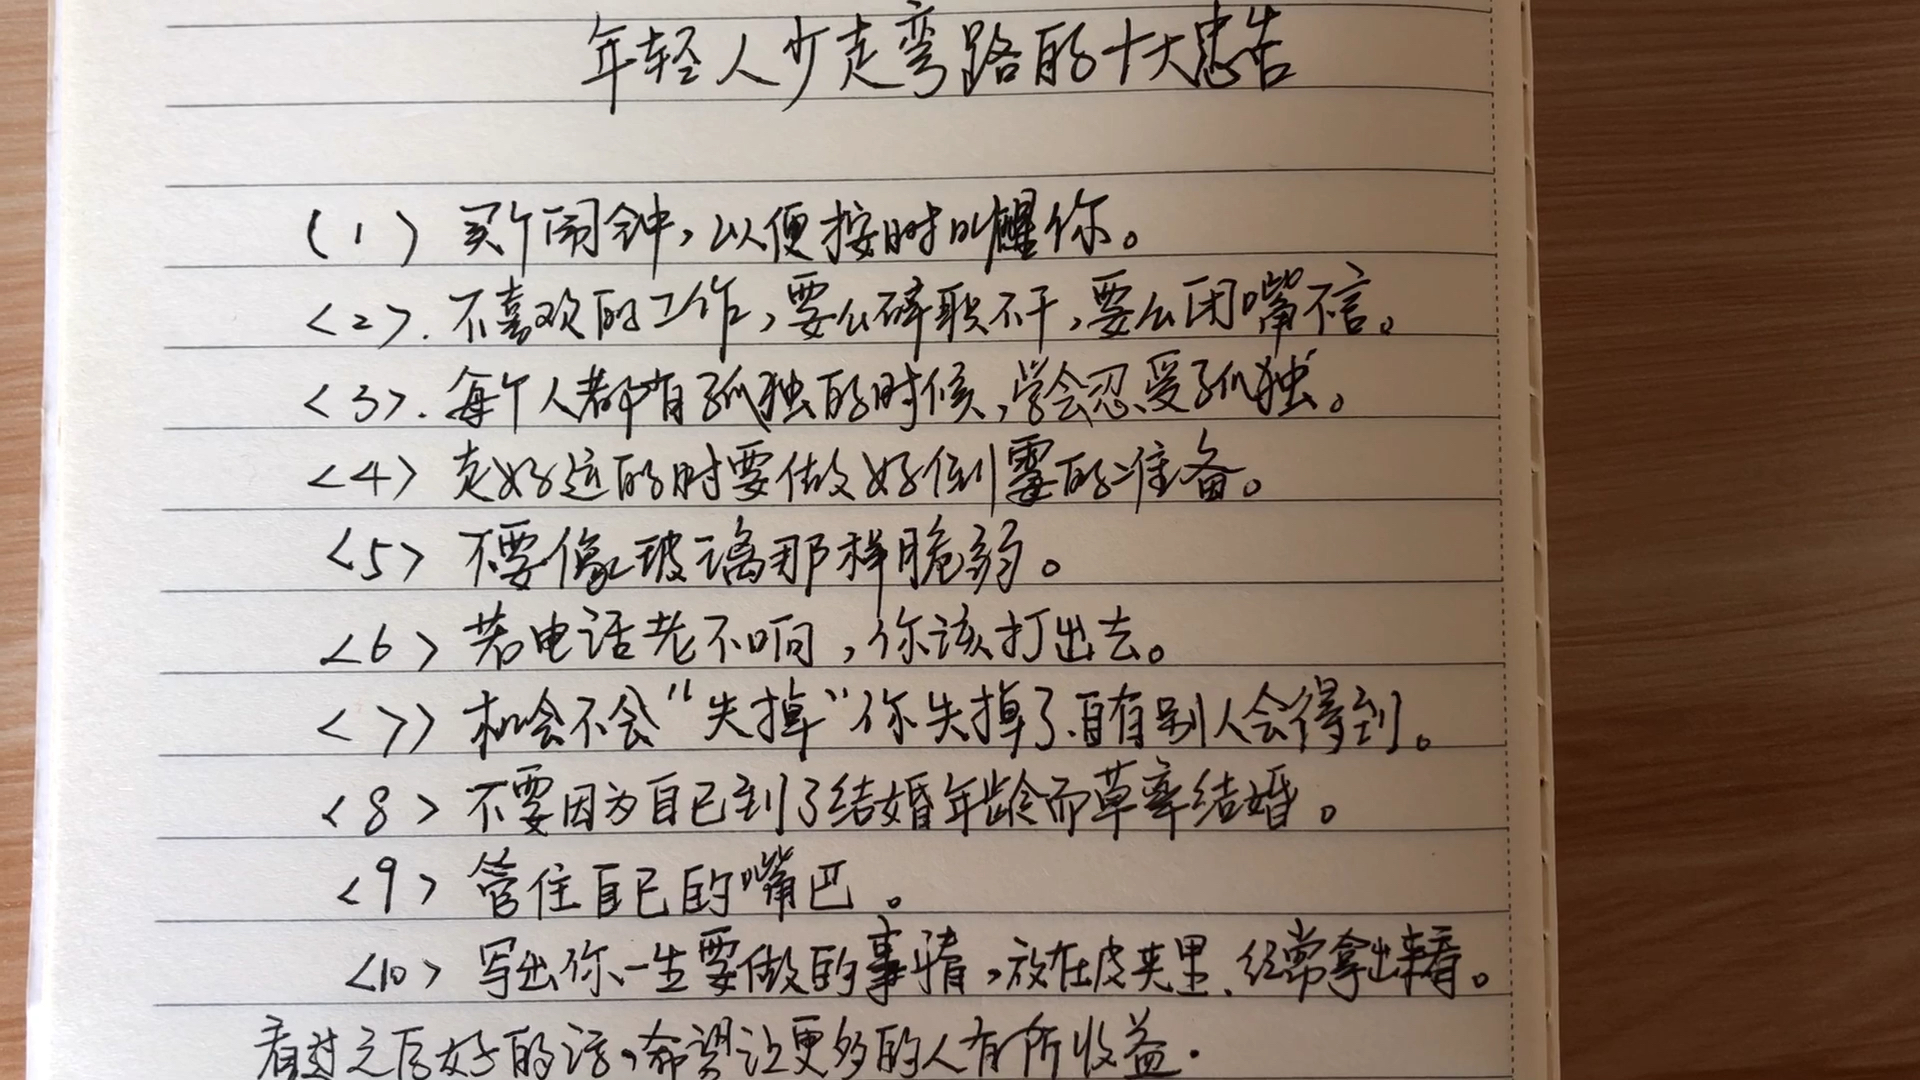 年轻人少走弯路的十大忠告
(1) 买个闹钟,以便按时叫醒你。
<2>. 不喜欢的工作,要么辞职不干,要么闭嘴不言。
<3>. 每个人都有孤独的时候,学会忍受孤独。
<4> 走好运的时要做好倒霉的准备。
<5> 不要像玻璃那样脆弱。
<6> 若电话老不响,你该打出去。
<7> 机会不会“失掉”你失掉了、自有别人会得到。
<8> 不要因为自已到了结婚年龄而草率结婚。
<9> 管住自已的嘴巴。
<10> 写出你一生要做的事情,放在皮夹里、经常拿出来看。
看过之后好的话,希望让更多的人有所收益.